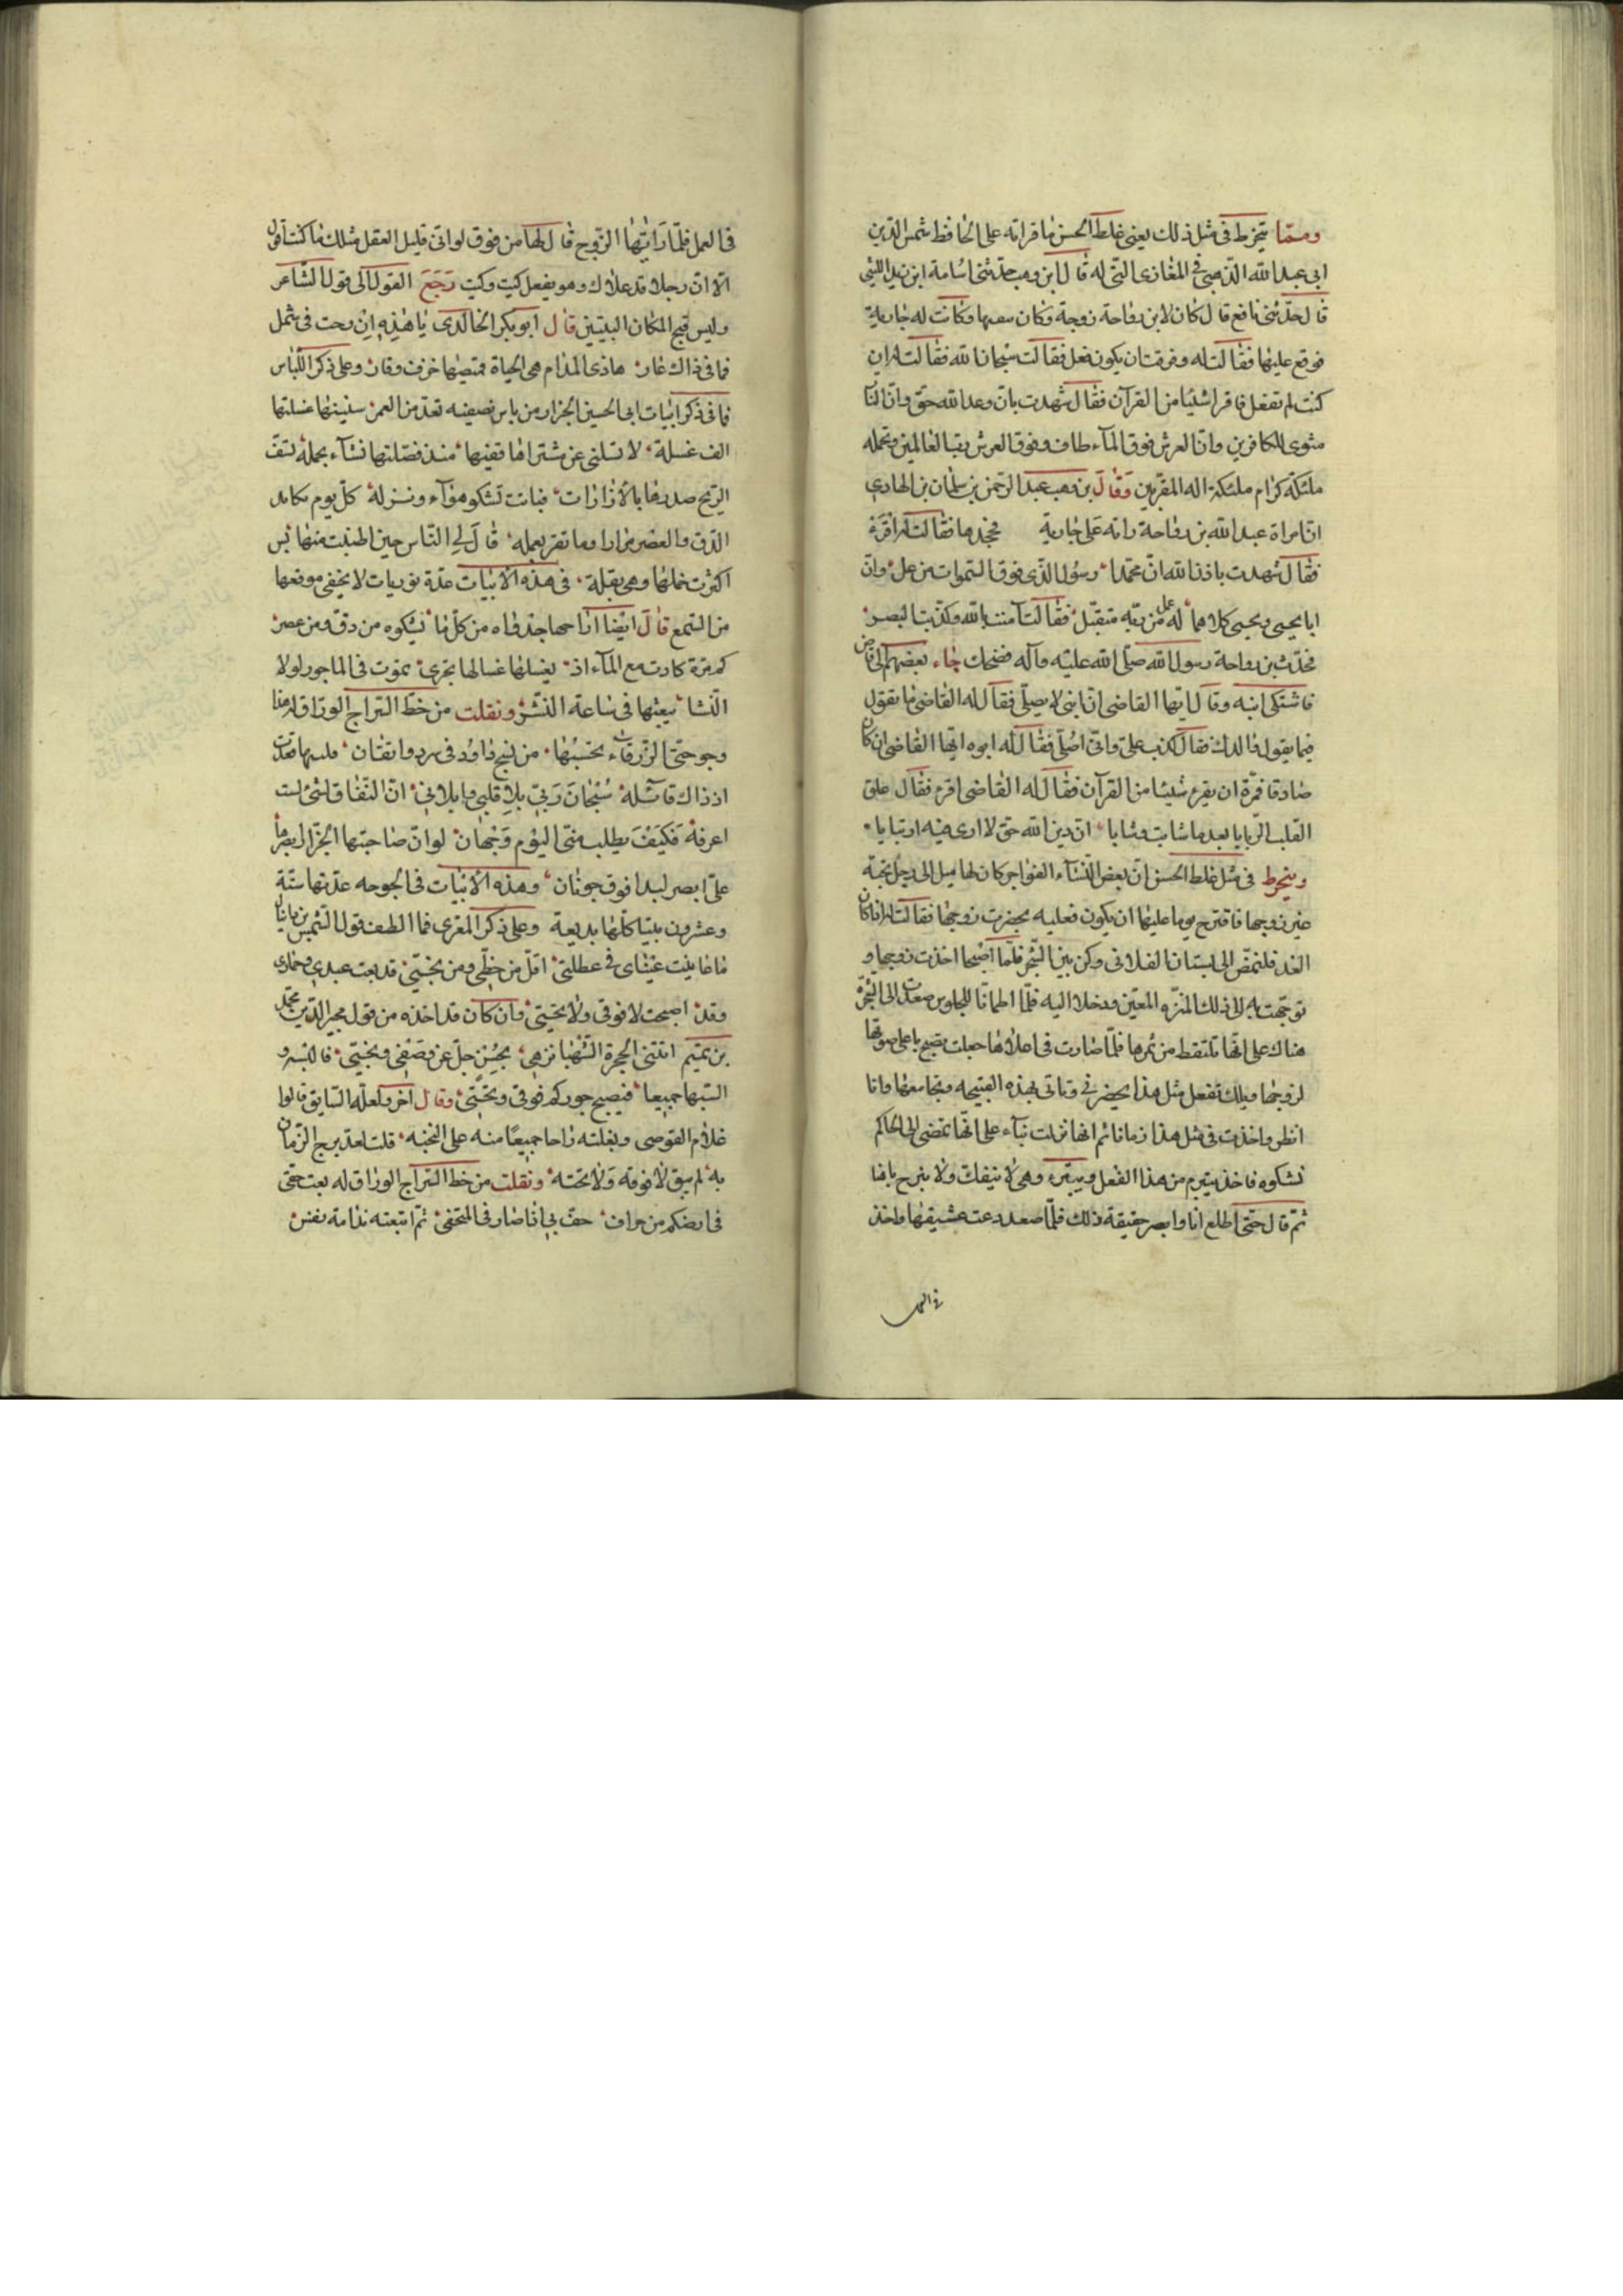 ومما ينخرط في مثل ذلك يعني غلط الحسن ما قراته على الحافظ شمس الدين
ابي عبد الله الذهبي في المغازي التي له قال ابن وهب حدثني اسامة ابن زيد الليثي
قال حدثني نافع قال كان لابن رواحة زوجة وكان وكانت له جارية
فوقع عليها فقالت له وفرقت ان يكون فعل فقالت سبحان الله فقالت له ان
كنت لم تفعل فاقرا شيئا من القرآن فقال شهدت بان وعد الله حق وان النا
مثوى الكافرين وان العرش فوق الماء طاف وفوق العرش رب العالمين وتحمله
ملئكة كرام ملئكة اله المقربين وقال بن وهب عبد الرحمن بن سلمان بن الهادي
ان امراة عبد الله بن رواحة راته على جارية فجحدها فقالت له اقره
فقال شهدت باذن الله ان محمدا رسول الذي فوق السموات من عل وان
ابا يحيى ويحيى كلاهما له عمل من ربه متقبل فقالت آمنت بالله وكذبت البصر
فحدث بن رواحة رسول الله صلى الله عليه وآله فضحك جاء بعضهم الى قاض
فاشتكى ابنه وقال ايها القاضي ان ابني لا يصلي فقال له القاضي ما تقول
فيما يقول والدك فقال كذب علي واني اصلي فقال له ابوه ايها القاضي ان كان
صادقا فمره ان يقرء شيئا من القرآن فقال له القاضي اقرء فقال علق
القلب الربابا بعد ما شابت وشابا ان دين الله حق لا ارى فيه ارتيابا
وينخرط في مثل غلط الحسن ان بعض النساء الفواجر كان لها ميل الى رجل تحبه
غير زوجها فاقترح يوما عليها ان يكون فعليه بحضرت زوجها فقالت له اذا كان
الغد فلنمض الى البستان الفلاني وكن بين الشجر فلما اصبحا اخذت زوجها و
توجهت به الى ذلك المنزه المعين ودخلا اليه فلما اطمانا للجلوس صعدت الى الشجرة
هناك على انها تلتقط من ثمرها فلما صارت في اعلاها جعلت تصيح باعلى صوتها
لزوجها ويلك تفعل مثل هذا بحضرتي وتاتي بهذه القبيحه وتجامعها وانا
انظر واخذت في مثل هذا زمانا ثم انها نزلت بناء على انها تمضي الى الحاكم
تشكوه فاخذ يتبرم من هذا الفعل ويتبرء وهي لا تنفك ولا تبرح بامنا
ثم قال حتى اطلع انا وابصر حقيقة ذلك فلما صعد دعت عشيقها واخذ
في العمل
في العمل فلما رايتها الزوج قال لها من فوق لو اني قليل العقل مثلك ما كنت اقول
الا ان رجلا قد علاك وهو يفعل كيت وكيت رجع القول الى قول الشاعر
وليس قبح المكان البيتين قال ابو بكر الخالدي يا هذه ان رحت في شمل
فما في ذاك عار هاذي المدام هي الحياة قميصها خزف وقار وعلى ذكر اللباس
فما في ذكر ابيات ابي الحسين الجزار من باس نصفيه تعد من العمر سنينها غسلتها
الف غسلة لا تسلني عن مشتراها ففيها منذ فصلتها نشآء بجملة
الريح صدرها بالازارات فباتت تشكو هوآء ونزلة كل يوم تكابد
الدق والعصر مرارا وما تقر بعمله قال لي الناس حين اطنبت منها بس
اكثرت خملها وهي بقله في هذه الابيات عدة توريات لا يخفى موقعها
من السمع قال ايضا من كل ما تشكوه من دق ومن عصر
كم مرة كادت مع المآء اذ يغسلها غسالها تجري تموت في الماجور لولا
النشا يبعثها في ساعة النشر ونقلت من خط السراج الوراق له
وجوختي الزرقآء تحسبها من نسج داود في سرد واتقان
اذ ذاك قائلة سبحان ربي بلا قلبي وابلاني ان النفاق لشئ لست
اعرفه فكيف يطلب مني اليوم وجهان لو ان صاحبها الجزار ابصرها
علي ابصر لبدا فوق جوذان وهذه الابيات في الجوخه عدتها ستة
وعشرون بيتا كلها بديعة وعلى ذكر المعري فما الطف قول الشمس بن دانيال
ما عاينت عيناي في عطلتي اقل من حظي ومن بختي قد بعت عبدي وحماري
وقد اصبحت لا فوقي ولا تحتي وان كان قد اخذه من قول مجير الدين محمد
بن تميم اتتني الحجرة الشهبا تزهي بحسن جل عن وصفي وبختي
جميعا فيصبح جودكم فوقي وتحتي وقال آخر ولعله السابق قالوا
غلام القوصي وبغلته راحا جميعا منه على النخبه قلت لعد برح الزمان
به لم يبق لا فوقه ولا تحته ونقلت من خط السراج الوراق له بعت خفي
في ارضكم من حراف حف بي اذا صار في المتحفي ثم اتبعته ندامة نفس